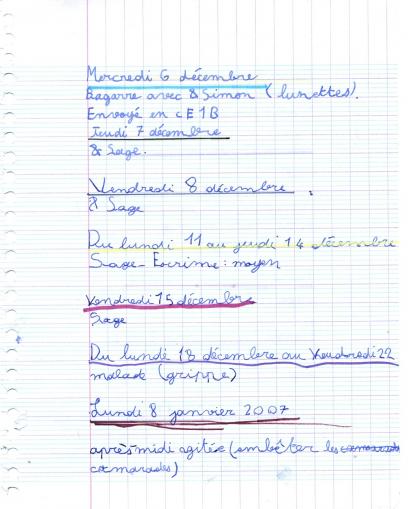 Mercredi 6 décembre
Bagarre avec & Simon (lunettes).
Envoyé en CE1B
Jeudi 7 décembre
& Sage.
Vendredi 8 décembre.
& Sage
Du lundi 11 au jeudi 14 décembre
Sage - Escrime : moyen
Vendredi 15 décembre
Sage
Du lundi 18 décembre au Vendredi 22
malade (grippe)
Lundi 8 janvier 2007
après midi agitée (embêter les
camarades)